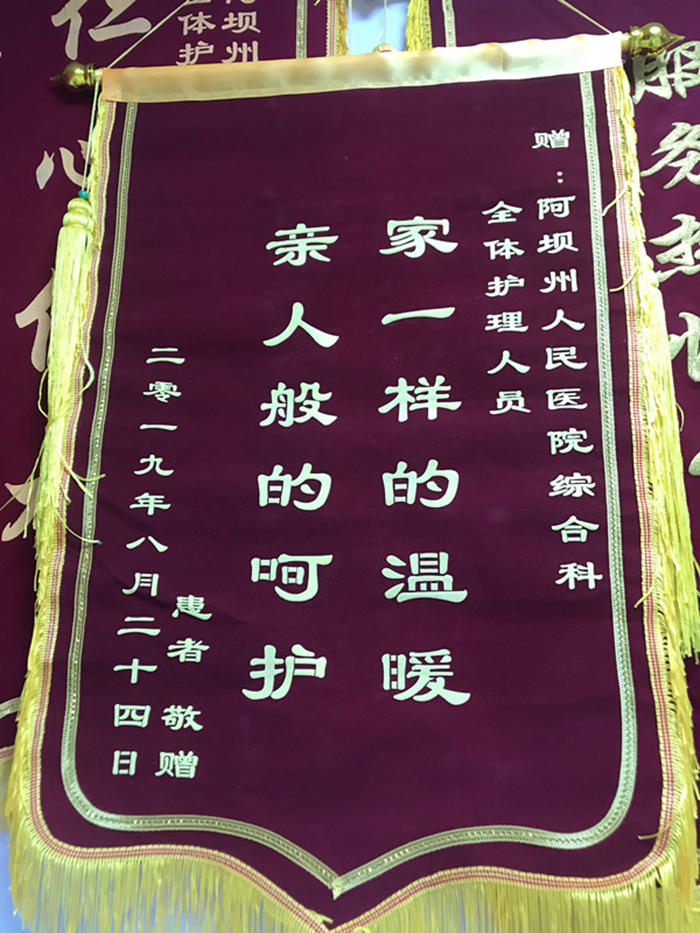 赠：阿坝州人民医院综合科
全体护理人员
家一样的温暖
亲人般的呵护
患者 敬赠
二零一九年八月二十四日
服务热
阿坝州
全体护
仁心